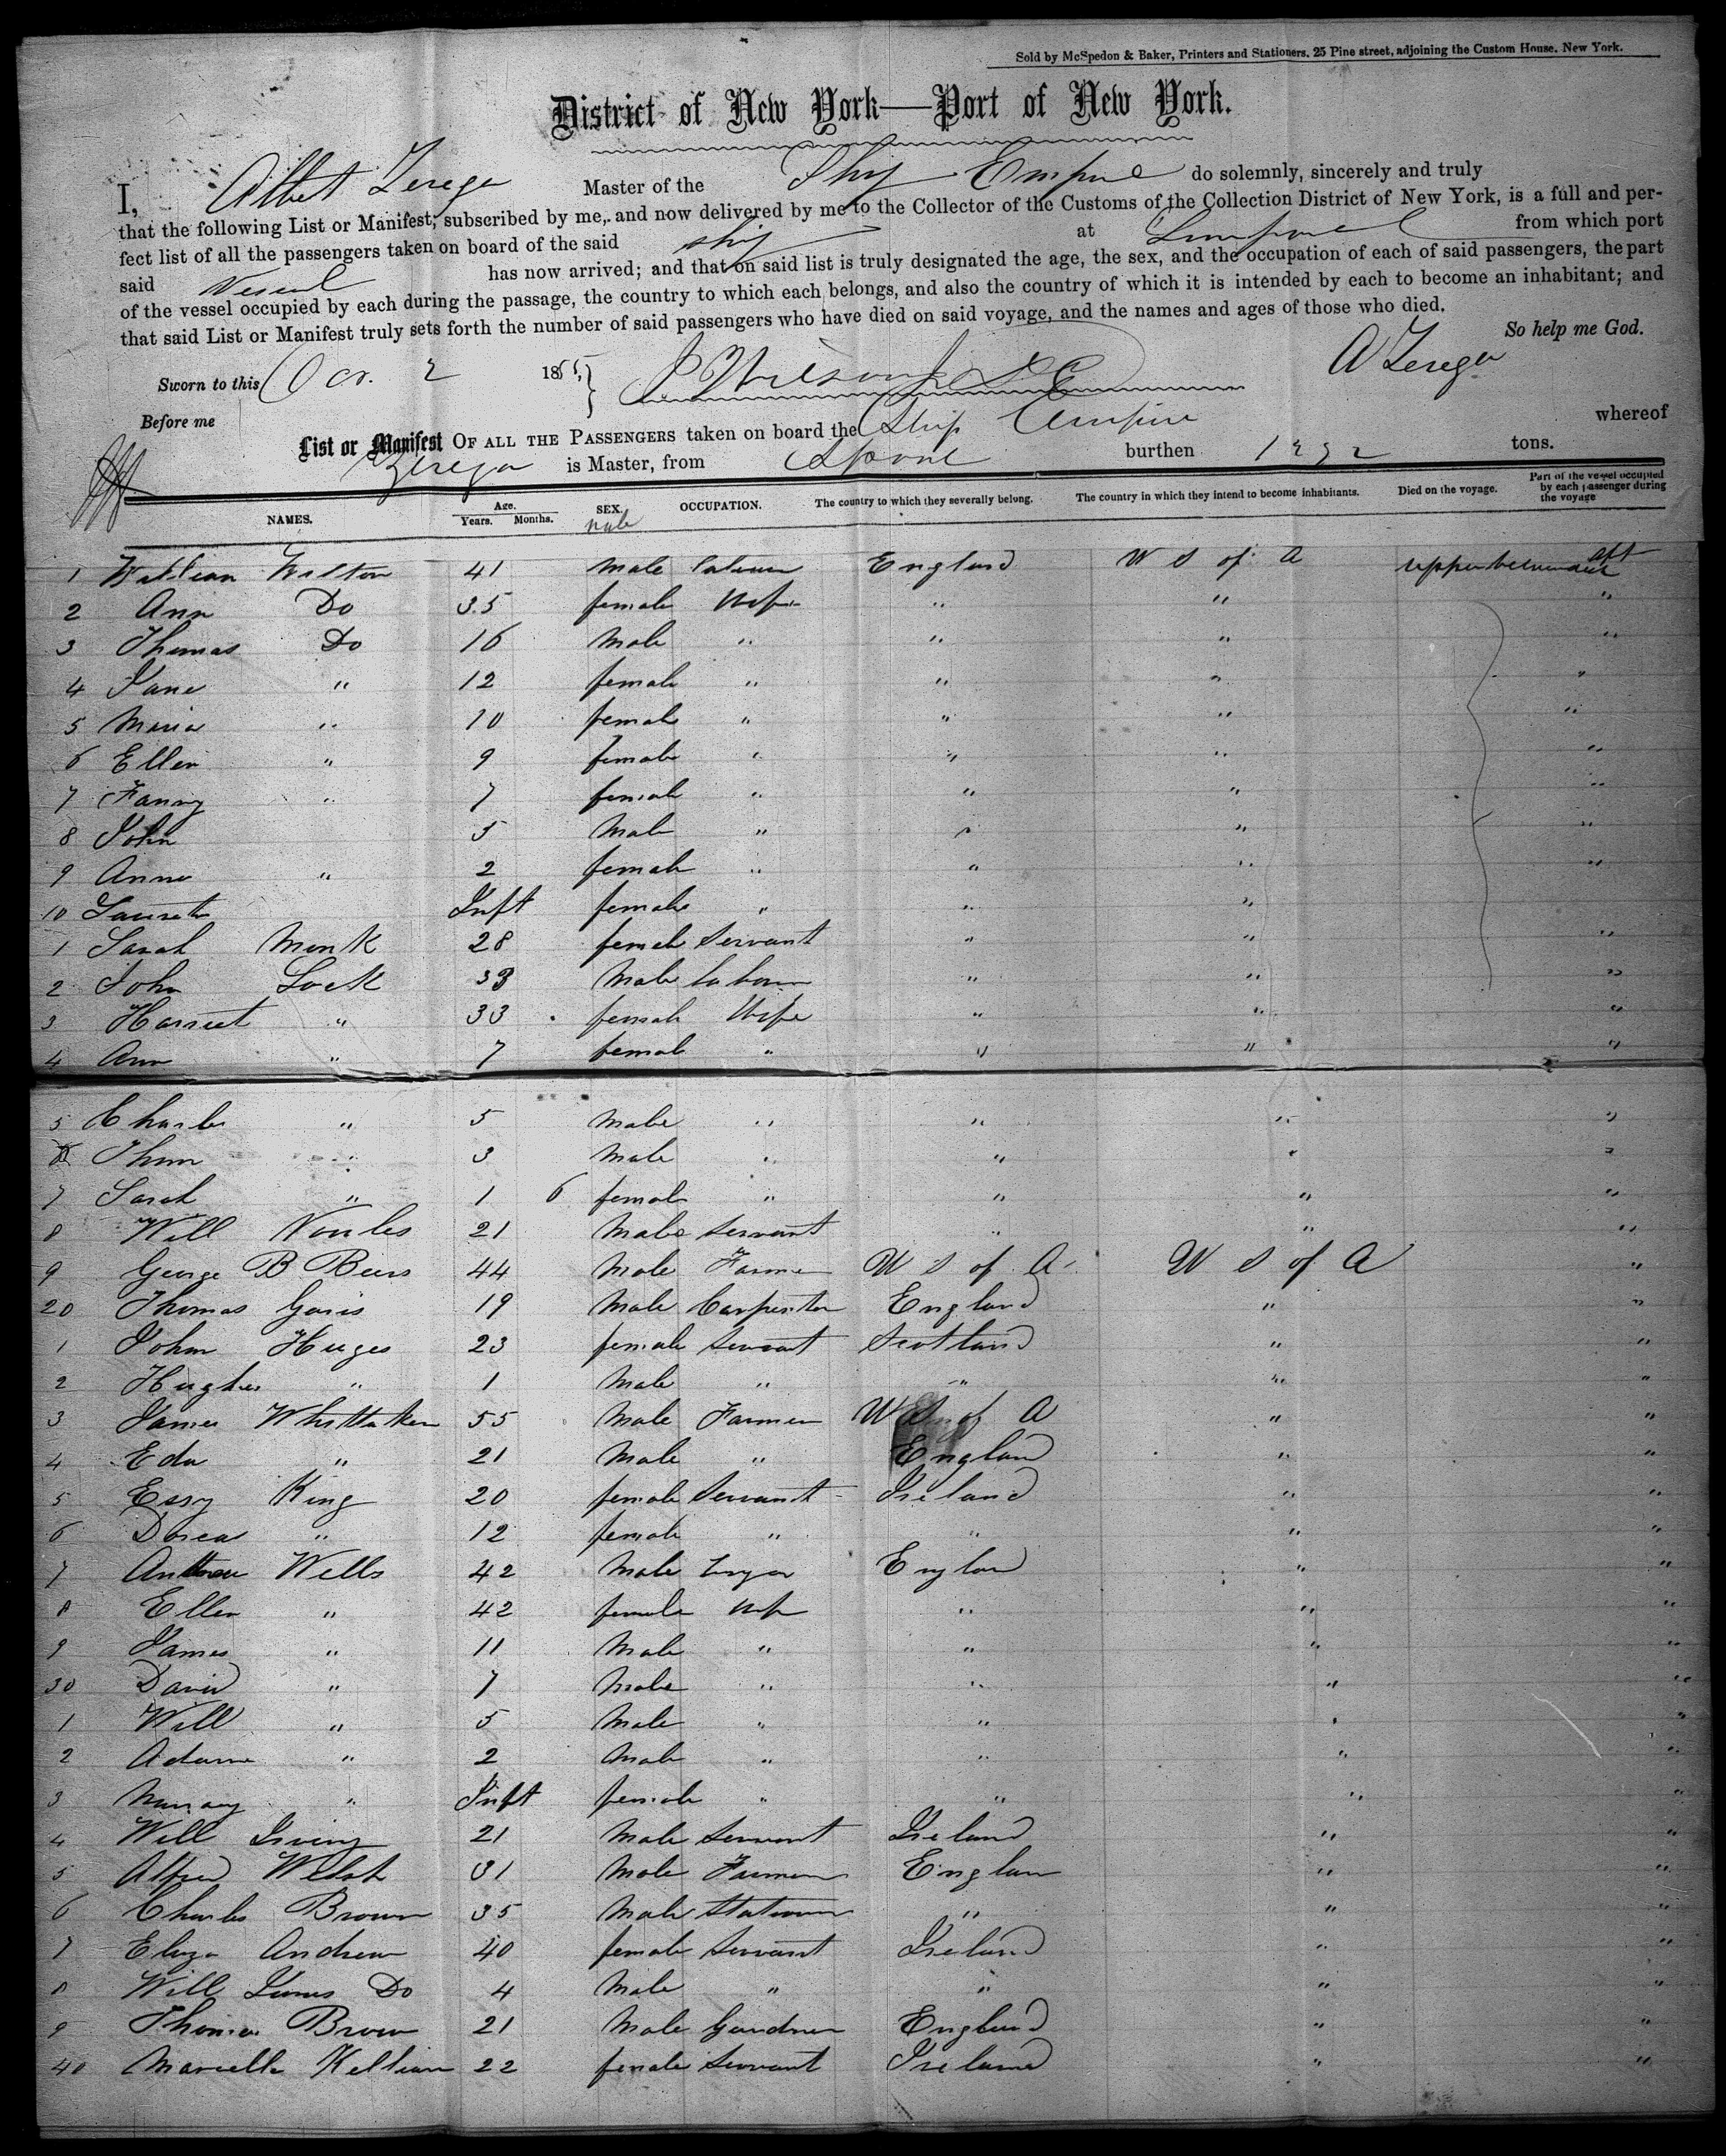 Sold by McSpedon & Baker, Printers and Stationers. 25 Pine street, adjoining the Custom House, New York.
District of New York—Port of New York.
I, Albert Zerega Master of the Ship Empire do solemnly, sincerely and truly
that the following List or Manifest, subscribed by me, and now delivered by me to the Collector of the Customs of the Collection District of New York, is a full and per-
fect list of all the passengers taken on board of the said ship at from which port
said Vessel has now arrived; and that on said list is truly designated the age, the sex, and the occupation of each of said passengers, the part
of the vessel occupied by each during the passage, the country to which each belongs, and also the country of which it is intended by each to become an inhabitant; and
that said List or Manifest truly sets forth the number of said passengers who have died on said voyage, and the names and ages of those who died.
So help me God.
Sworn to this Oct. 2 1855 A Zerega
Before me
List or Manifest OF ALL THE PASSENGERS taken on board the Ship Empire whereof
Zerega is Master, from burthen tons.
NAMES. Age. Years. Months. SEX. OCCUPATION. The country to which they severally belong. The country in which they intend to become inhabitants. Died on the voyage. Part of the vessel occupied by each passenger during the voyage
male
1 William Wilton 41 male England U S of A upper between deck aft
2 Ann Do 35 female Wife " " "
3 Thomas Do 16 male " " " "
4 Jane " 12 female " " " "
5 Maria " 10 female " " " "
6 Ellen " 9 female " " " "
7 Fanny " 7 female " " " "
8 John 5 male " " " "
9 Anne " 2 female " " " "
10 Inft female " " " "
1 Sarah Monk 28 female Servant " " "
2 John Lock 33 male " " "
3 Harriet " 33 female Wife " " "
4 Ann " 7 female " " " "
5 Charles " 5 male " " " "
6 " 3 male " " " "
7 Sarah " 1 6 female " " " "
8 Will 21 male servant " " "
9 George B Beers 44 male Farmer U S of A U S of A "
20 Thomas 19 male Carpenter England " "
1 John Huges 23 female servant Scotland " "
2 Hughes " 1 male " " " "
3 James Whittaker 55 male Farmer U S of A " "
4 Edw " 21 male " England " "
5 Essy King 20 female Servant Ireland " "
6 Dorcas " 12 female " " " "
7 Wells 42 male England " "
8 Ellen " 42 female wife " " "
9 James " 11 male " " " "
30 David " 7 male " " " "
1 Will " 5 male " " " "
2 Adam " 2 male " " " "
3 " Inft female " " " "
4 Will Irving 21 male servant Ireland " "
5 Alfred Welsh 31 male Farmer England " "
6 Charles Brown 35 male " " "
7 Eliza Andrew 40 female servant Ireland " "
8 Will James Do 4 male " " " "
9 Thomas Brown 21 male Gardner England " "
40 Marcella Kellian 22 female servant Ireland " "